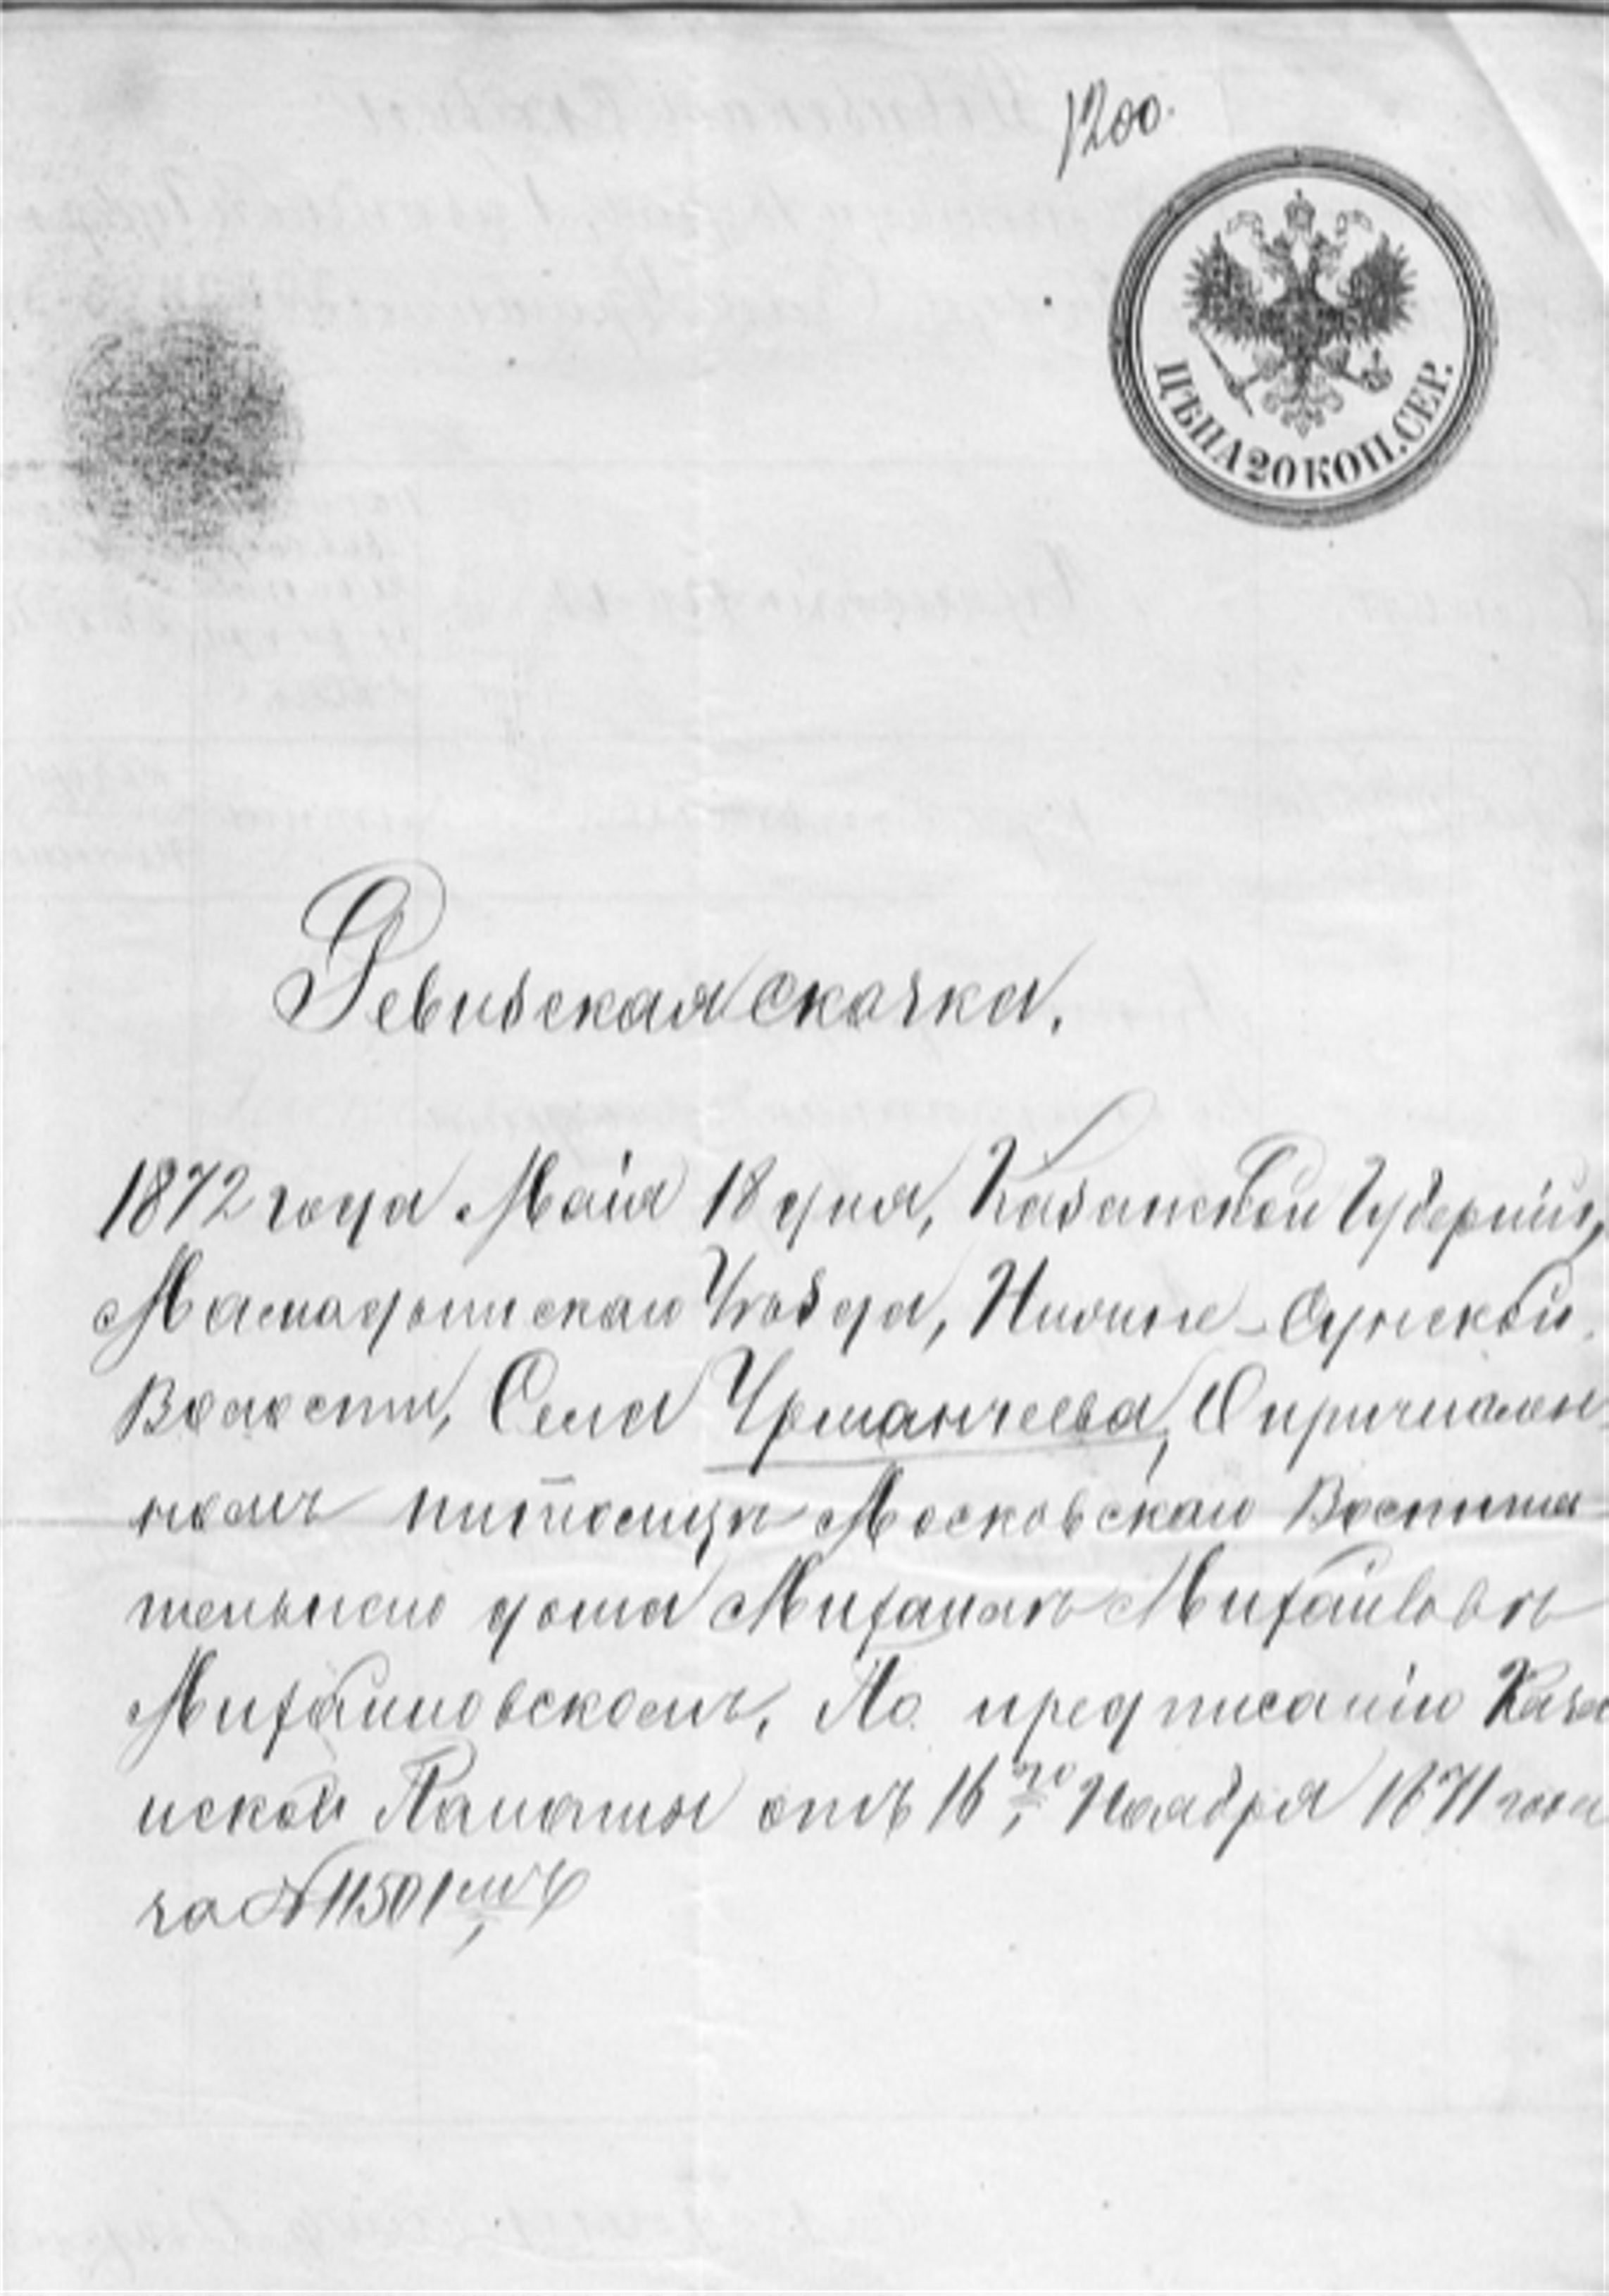 1200.
ЦѢНА 20 КОП. СЕР.
Ревизская сказка.
1872 года Маія 18 дня, Казанской Губерніи,
Мамадышскаго Уѣзда, Нижне-Сунской
Волости, Села Урманчеева, О причислен-
номъ питомцѣ Московскаго Воспита-
тельнаго дома Михаилѣ Михайловѣ
Михайловскомъ, По предписанію Каза
нской Палаты отъ 16го Ноября 1871 года
за № 11501мъ